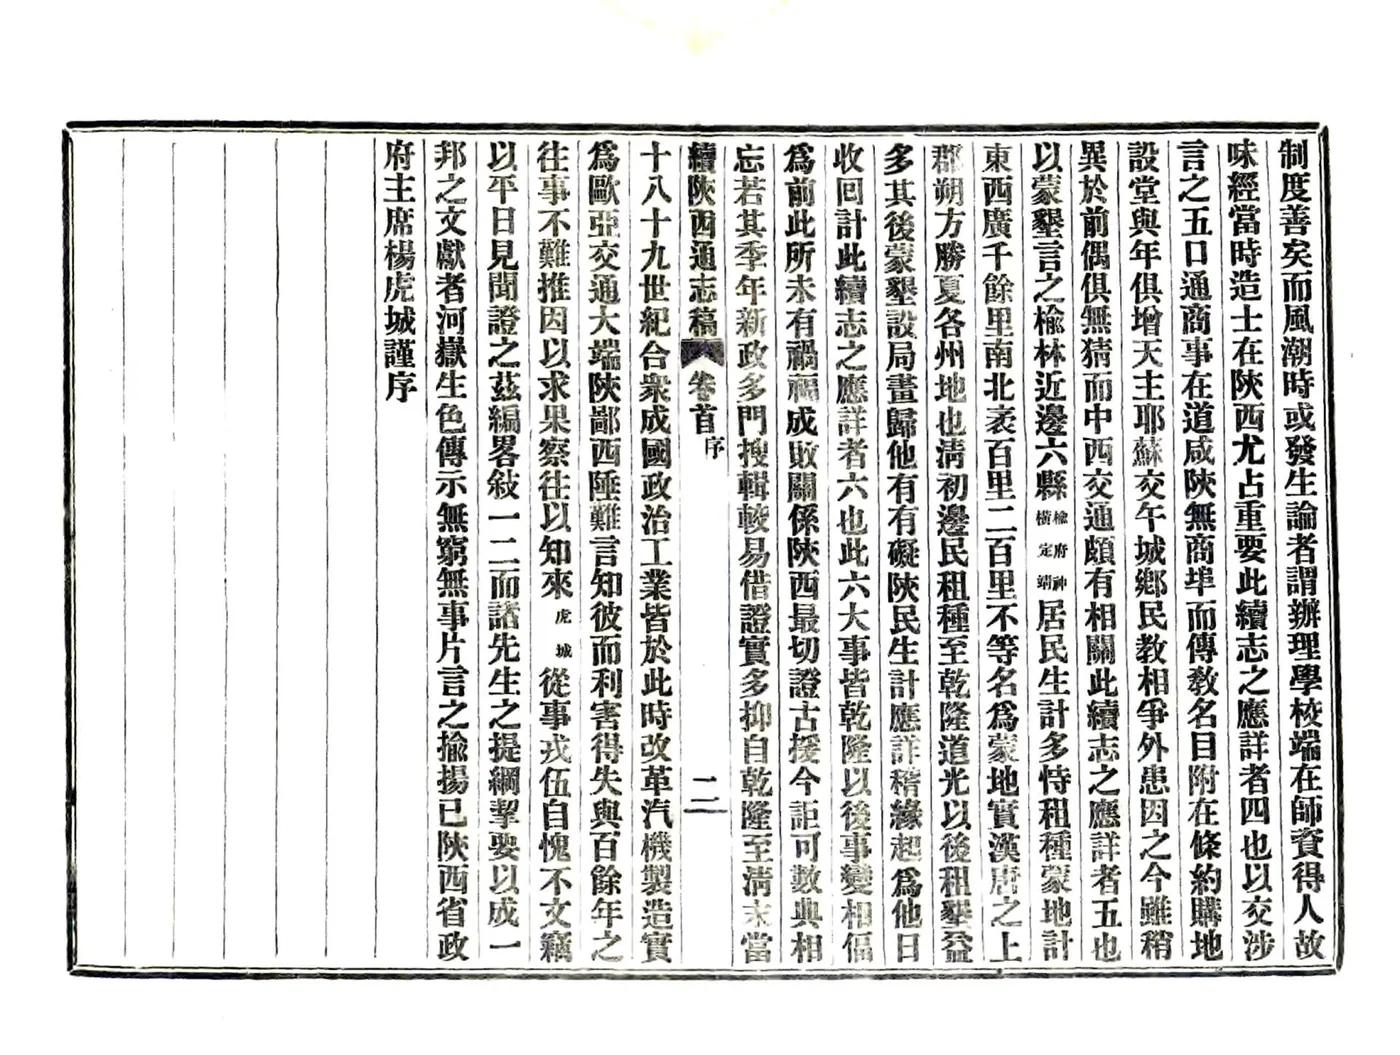 制度善矣而風潮時或發生論者謂辦理學校端在師資得人故
味經當時造士在陝西尤占重要此續志之應詳者四也以交涉
言之五口通商事在道咸陝無商埠而傳教名目附在條約購地
設堂與年俱增天主耶蘇交午城鄉民教相爭外患因之今雖稍
異於前偶俱無猜而中西交通頗有相關此續志之應詳者五也
以蒙墾言之榆林近邊六縣榆府神橫定靖居民生計多恃租種蒙地計
東西廣千餘里南北袤百里二百里不等名爲蒙地實漢唐之上
郡朔方勝夏各州地也清初邊民租種至乾隆道光以後租墾益
多其後蒙墾設局畫歸他有有礙陝民生計應詳稽緣起爲他日
收回計此續志之應詳者六也此六大事皆乾隆以後事變相偪
爲前此所未有禍福成敗關係陝西最切證古援今詎可數典相
忘若其季年新政多門搜輯較易借證實多抑自乾隆至清末當
續陝西通志稿 卷首 序 二
十八十九世紀合衆成國政治工業皆於此時改革汽機製造實
爲歐亞交通大端陝鄙西陲難言知彼而利害得失與百餘年之
往事不難推因以求果察往以知來虎城從事戎伍自愧不文竊
以平日見聞證之茲編畧敍一二而諸先生之提綱挈要以成一
邦之文獻者河嶽生色傳示無窮無事片言之揄揚已陝西省政
府主席楊虎城謹序